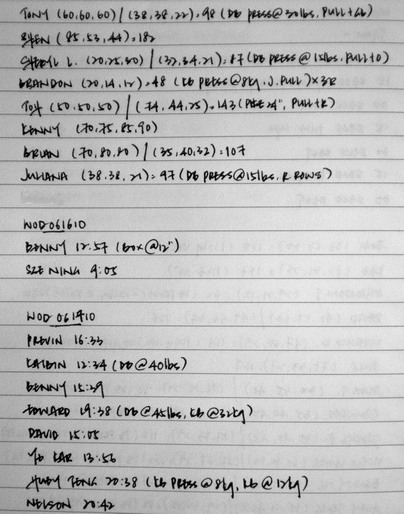 TONY (60,60,60) / (38,38,22)=98 (DB PRESS@30lbs, PULL+Gb)
SHEN (85,53,44)=182
SHERYL L. (20,25,60) / (32,34,21)=87 (DB PRESS@15lbs, PULL+O)
BRANDON (20,14,12)=48 (KB PRESS@8kg, J.PULL)×3R
(50,50,50) / (74,44,25)=143 (24", PULL+R)
KENNY (70,75,85,90)
BRIAN (70,80,80) / (35,40,32)=107
JULIANA (38,38,21)=97 (DB PRESS@15lbs, R ROWS)
WOD 061610
BENNY 12:57 (BOX@12")
SZE NING 9:05
WOD 061410
PREVIN 16:33
KAIBIN 12:34 (DB@40lbs)
BENNY 15:29
EDWARD 19:38 (DB@45lbs, KB@32kg)
DAVID 15:05
KAR 13:56
20:38 (KB PRESS@8kg, KB@12kg)
NELSON 20:42